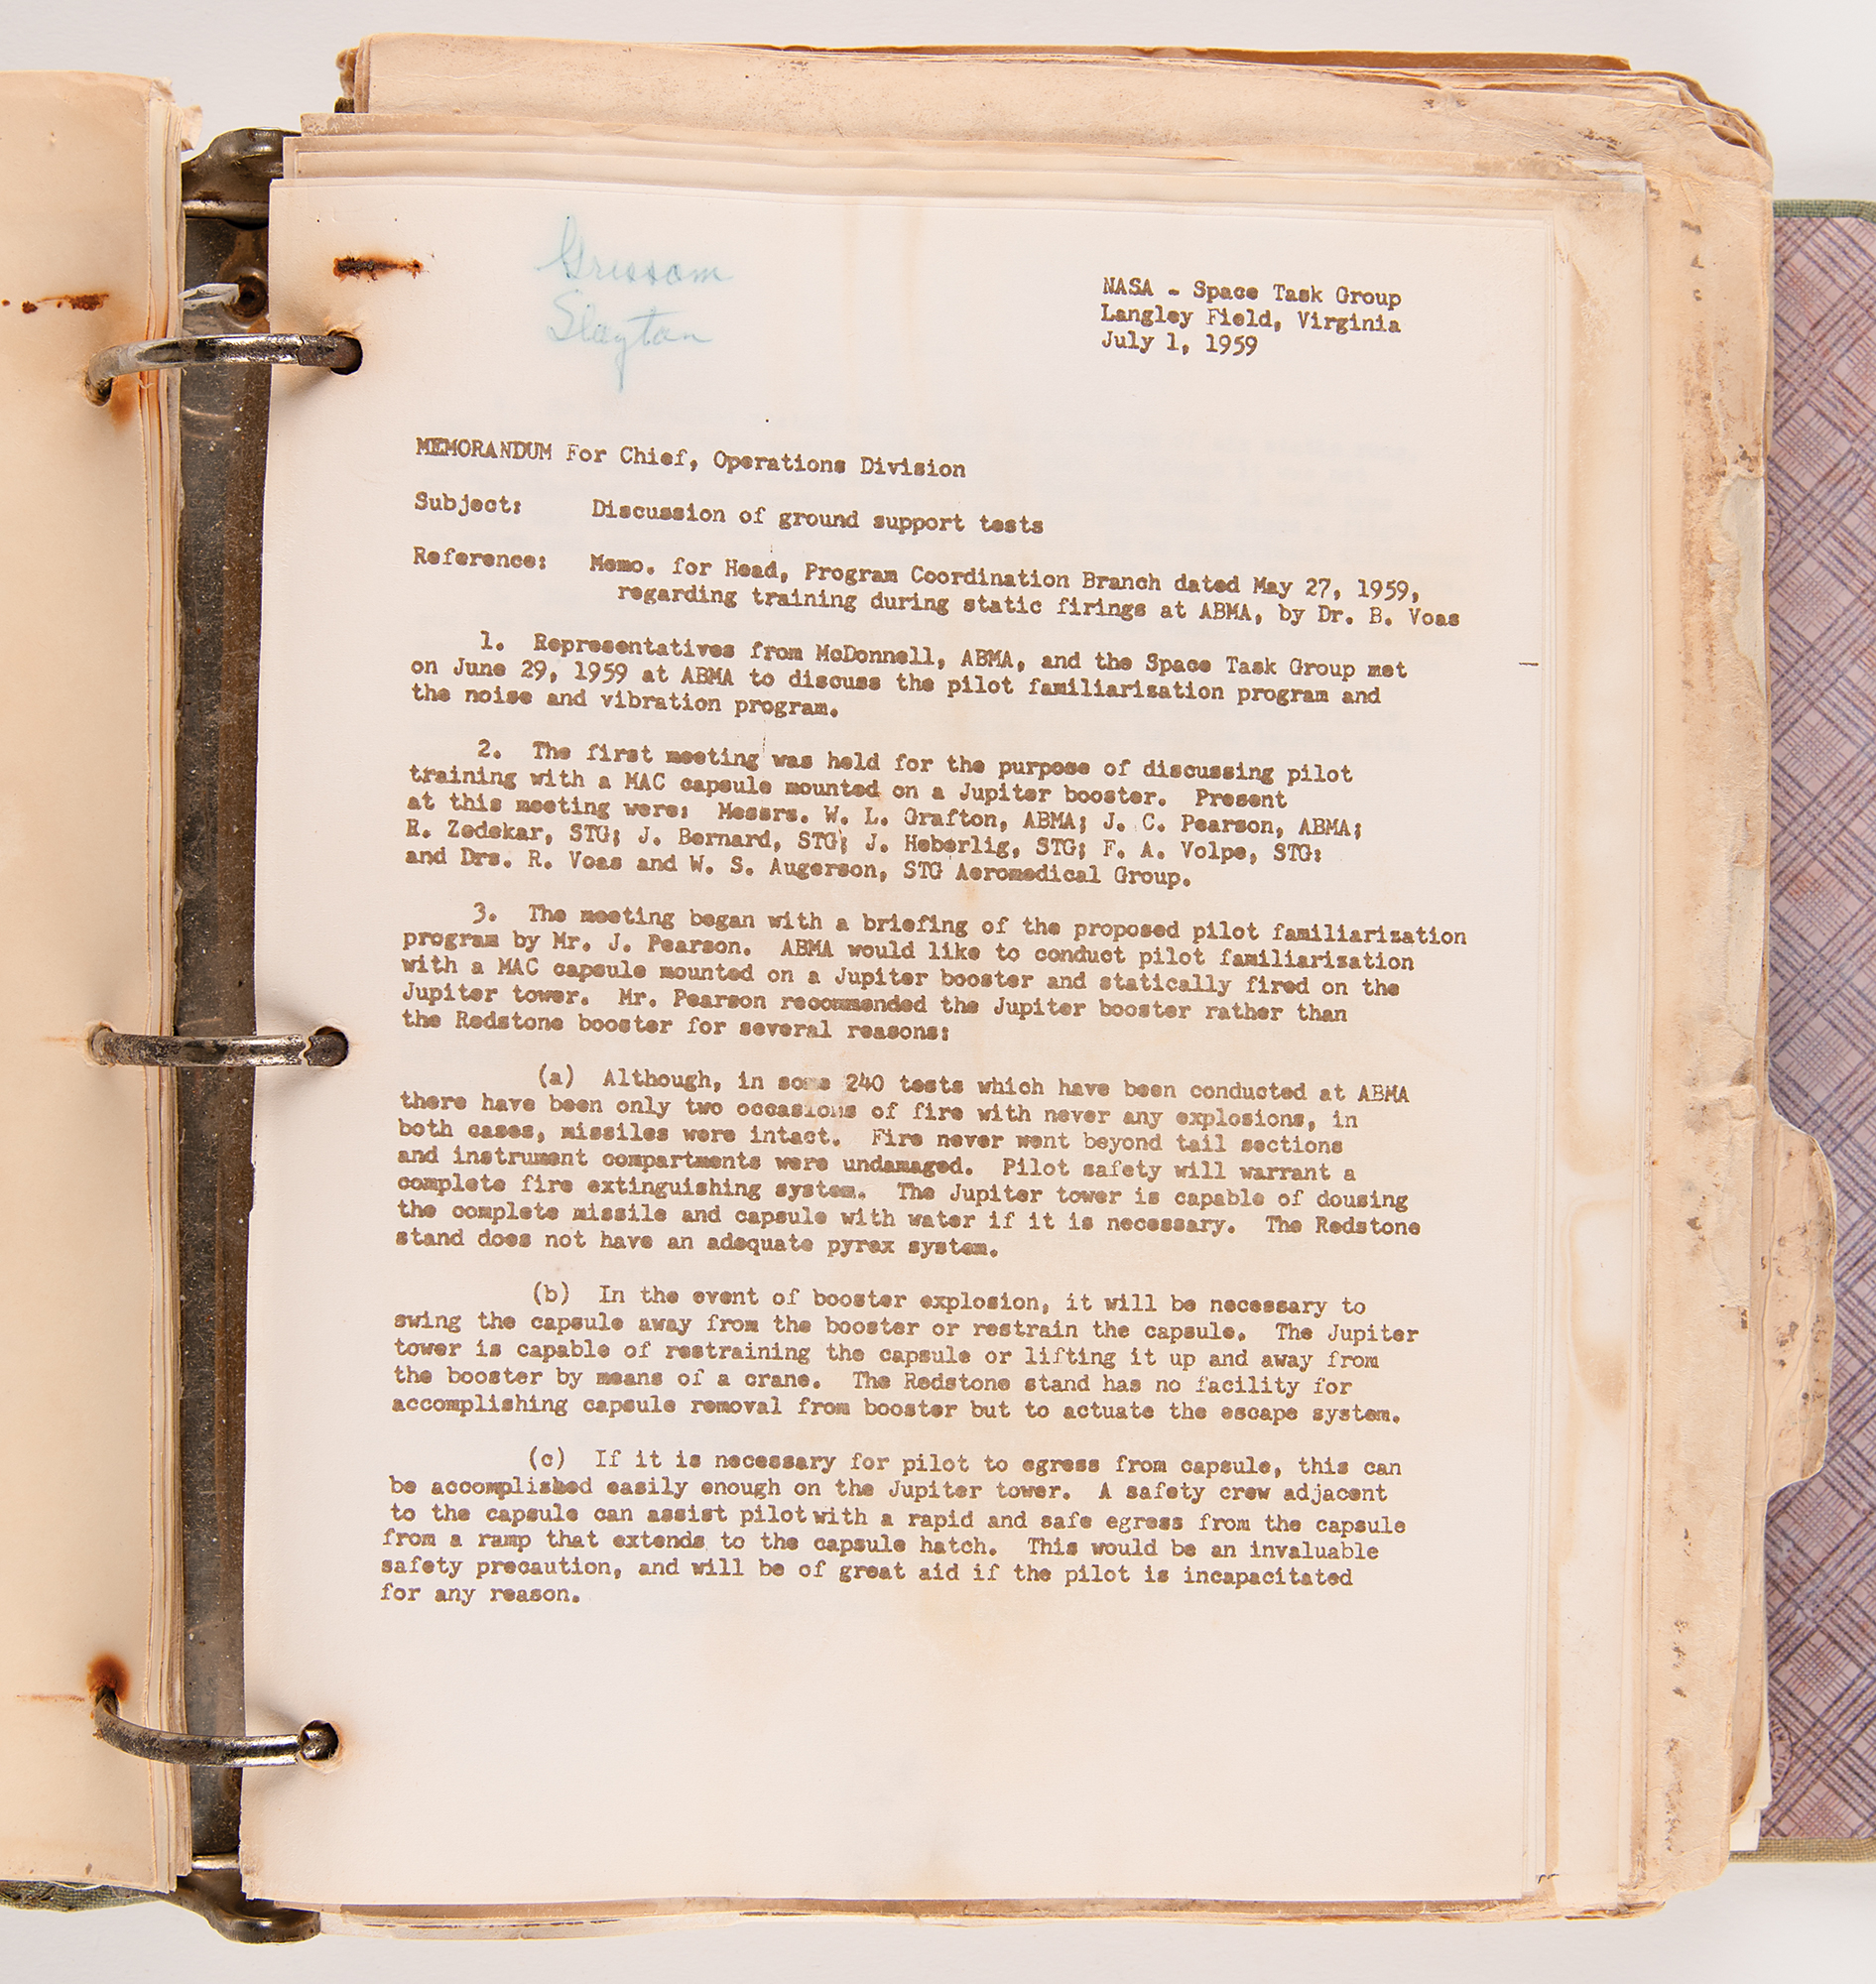 Grissom
Slayton
NASA - Space Task Group
Langley Field, Virginia
July 1, 1959
MEMORANDUM For Chief, Operations Division
Subject: Discussion of ground support tests
Reference: Memo. for Head, Program Coordination Branch dated May 27, 1959,
regarding training during static firings at ABMA, by Dr. B. Voas
1. Representatives from McDonnell, ABMA, and the Space Task Group met
on June 29, 1959 at ABMA to discuss the pilot familiarization program and
the noise and vibration program.
2. The first meeting was held for the purpose of discussing pilot
training with a MAC capsule mounted on a Jupiter booster. Present
at this meeting were: Messrs. W. L. Grafton, ABMA; J. C. Pearson, ABMA;
R. Zedekar, STG; J. Bernard, STG; J. Heberlig, STG; F. A. Volpe, STG:
and Drs. R. Voas and W. S. Augerson, STG Aeromedical Group.
3. The meeting began with a briefing of the proposed pilot familiarization
program by Mr. J. Pearson. ABMA would like to conduct pilot familiarization
with a MAC capsule mounted on a Jupiter booster and statically fired on the
Jupiter tower. Mr. Pearson recommended the Jupiter booster rather than
the Redstone booster for several reasons:
(a) Although, in some 240 tests which have been conducted at ABMA
there have been only two occasions of fire with never any explosions, in
both cases, missiles were intact. Fire never went beyond tail sections
and instrument compartments were undamaged. Pilot safety will warrant a
complete fire extinguishing system. The Jupiter tower is capable of dousing
the complete missile and capsule with water if it is necessary. The Redstone
stand does not have an adequate pyrex system.
(b) In the event of booster explosion, it will be necessary to
swing the capsule away from the booster or restrain the capsule. The Jupiter
tower is capable of restraining the capsule or lifting it up and away from
the booster by means of a crane. The Redstone stand has no facility for
accomplishing capsule removal from booster but to actuate the escape system.
(c) If it is necessary for pilot to egress from capsule, this can
be accomplished easily enough on the Jupiter tower. A safety crew adjacent
to the capsule can assist pilot with a rapid and safe egress from the capsule
from a ramp that extends to the capsule hatch. This would be an invaluable
safety precaution, and will be of great aid if the pilot is incapacitated
for any reason.